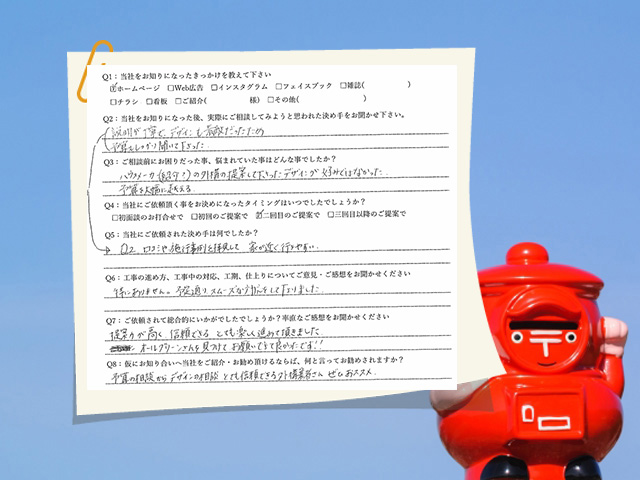 Q1：当社をお知りになったきっかけを教えて下さい
☑ホームページ □Web広告 □インスタグラム □フェイスブック □雑誌( )
□チラシ □看板 □ご紹介( 様) □その他( )
Q2：当社をお知りになった後、実際にご相談してみようと思われた決め手をお聞かせ下さい。
説明が丁寧で、デザインも素敵だったため
予算もしっかり聞いて下さった
Q3：ご相談前にお困りだった事、悩まれていた事はどんな事でしたか？
ハウスメーカー の外構の提案して下さったデザインが好みではなかった。
予算を大幅に超える
Q4：当社にご依頼頂く事をお決めになったタイミングはいつでしたでしょうか？
□初面談のお打合せで □初回のご提案で ☑二回目のご提案で □三回目以降のご提案で
Q5：当社にご依頼された決め手は何でしたか？
Q2. 口コミや施行事例を拝見して 家が近く行きやすい
Q6：工事の進め方、工事中の対応、工期、仕上りについてご意見・ご感想をお聞かせください
特にありません。予定通りスムーズな して下りました
Q7：ご依頼されて総合的にいかがでしたでしょうか？率直なご感想をお聞かせください
提案力が高く 信頼できる とても楽しく進めて頂きました
オールグリーンさんを見つけて お願いできて良かったです!!
Q8：仮にお知り合いへ当社をご紹介・お勧め頂けるならば、何と言ってお勧めされますか？
予算の相談から デザインの相談 とても信頼できる外構業者さん ぜひおススメ